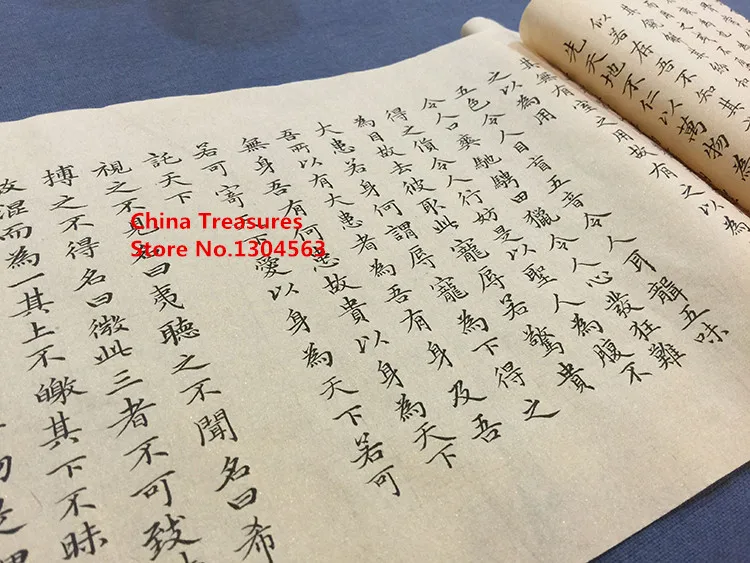 似若存吾不知其
先天地不仁以萬物為
其無有室之用故有之以為
之以為用
五色令人目盲五音令人耳聾五味
令人口爽馳騁田獵令人心發狂難
得之貨令人行妨是以聖人為腹不
為目故去彼取此寵辱若驚貴
大患若身何謂辱寵為下得之
吾所以有大患者為吾有身及吾
無身吾有何患故貴以身為天下
若可寄天下愛以身為天下若可
託天下
視之不見名曰夷聽之不聞名曰希
搏之不得名曰微此三者不可致
故混而為一其上不皦其下不昧
China Treasures
Store No.1304563